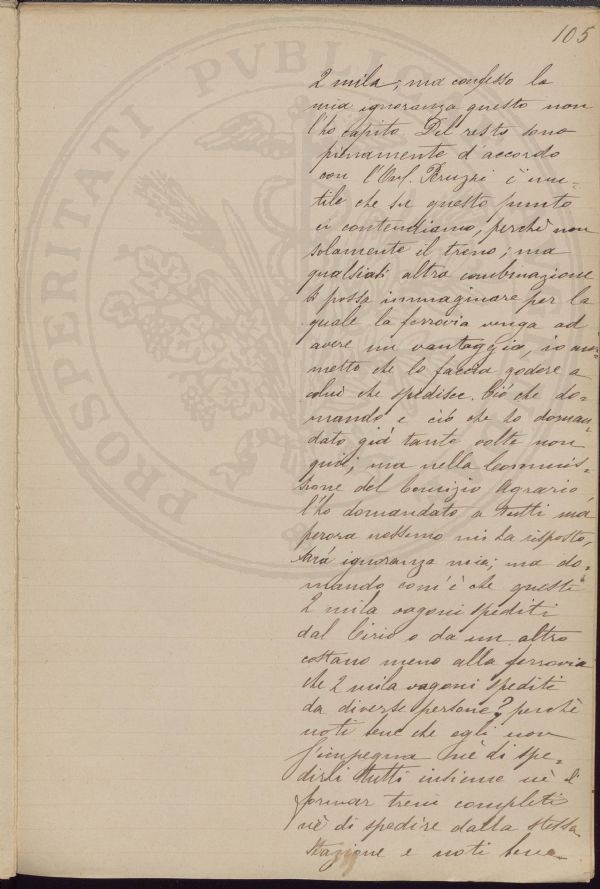 105
PROSPERITATI PVBLIC
2 mila; ma confesso la
mia ignoranza questo non
l'ho capito. Del resto sono
pienamente d'accordo
con l'Onl. è inu-
tile che su questo punto
ci contendiamo, perchè non
solamente il treno; ma
qualsiasi altra combinazione
si possa immaginare per la
quale la ferrovia venga ad
avere un vantaggio, io am-
metto che lo faccia godere a
colui che spedisce. Ciò che do-
mando e ciò che ho doman-
dato già tante volte non
quì, ma nella Commis-
sione del Comizio Agrario
l'ho domandato a tutti ma
perora nessuno mi ha risposto,
sarà ignoranza mia; ma do-
mando com'è che questi
2 mila vagoni spediti
dal Cirio o da un altro
costano meno alla ferrovia
che 2 mila vagoni spediti
da diverse persone? perchè
noti bene che egli non
s'impegna nè di spe-
dirli tutti insieme nè di
formar treni completi
nè di spedire dalla stessa
stazione e noti bene